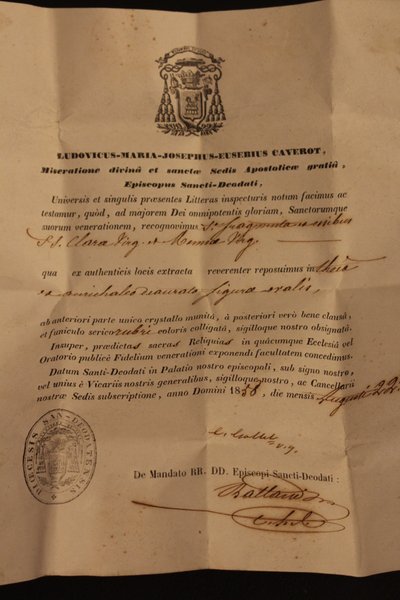 LUDOVICUS-MARIA-JOSEPHUS-EUSEBIUS CAVEROT,
Miseratione divinâ et sanctæ Sedis Apostolicæ gratiâ,
Episcopus Sancti-Deodati,
Universis et singulis præsentes Litteras inspecturis notum facimus ac
testamur, quòd, ad majorem Dei omnipotentis gloriam, Sanctorumque
suorum venerationem, recognovimus
St. Clara Virg. et Virg.
qua ex authenticis locis extracta reverenter reposuimus in theca
ex aurichalco deaurato figura ovalis,
ab anteriori parte unico crystallo munitâ, à posteriori verò bene clausâ,
et funiculo serico rubri coloris colligatâ, sigilloque nostro obsignatâ.
Insuper, prædictas sacras Reliquias in quâcumque Ecclesiâ vel
Oratorio publicè Fidelium venerationi exponendi facultatem concedimus.
Datum Santi-Deodati in Palatio nostro episcopali, sub signo nostro,
vel unius è Vicariis nostris generalibus, sigilloque nostro, ac Cancellarii
nostræ Sedis subscriptione, anno Domini 1858, die mensis Augusti 22
v. g.
De Mandato RR. DD. Episcopi Sancti-Deodati :
DIOECESIS SAN-DEODATENSIS